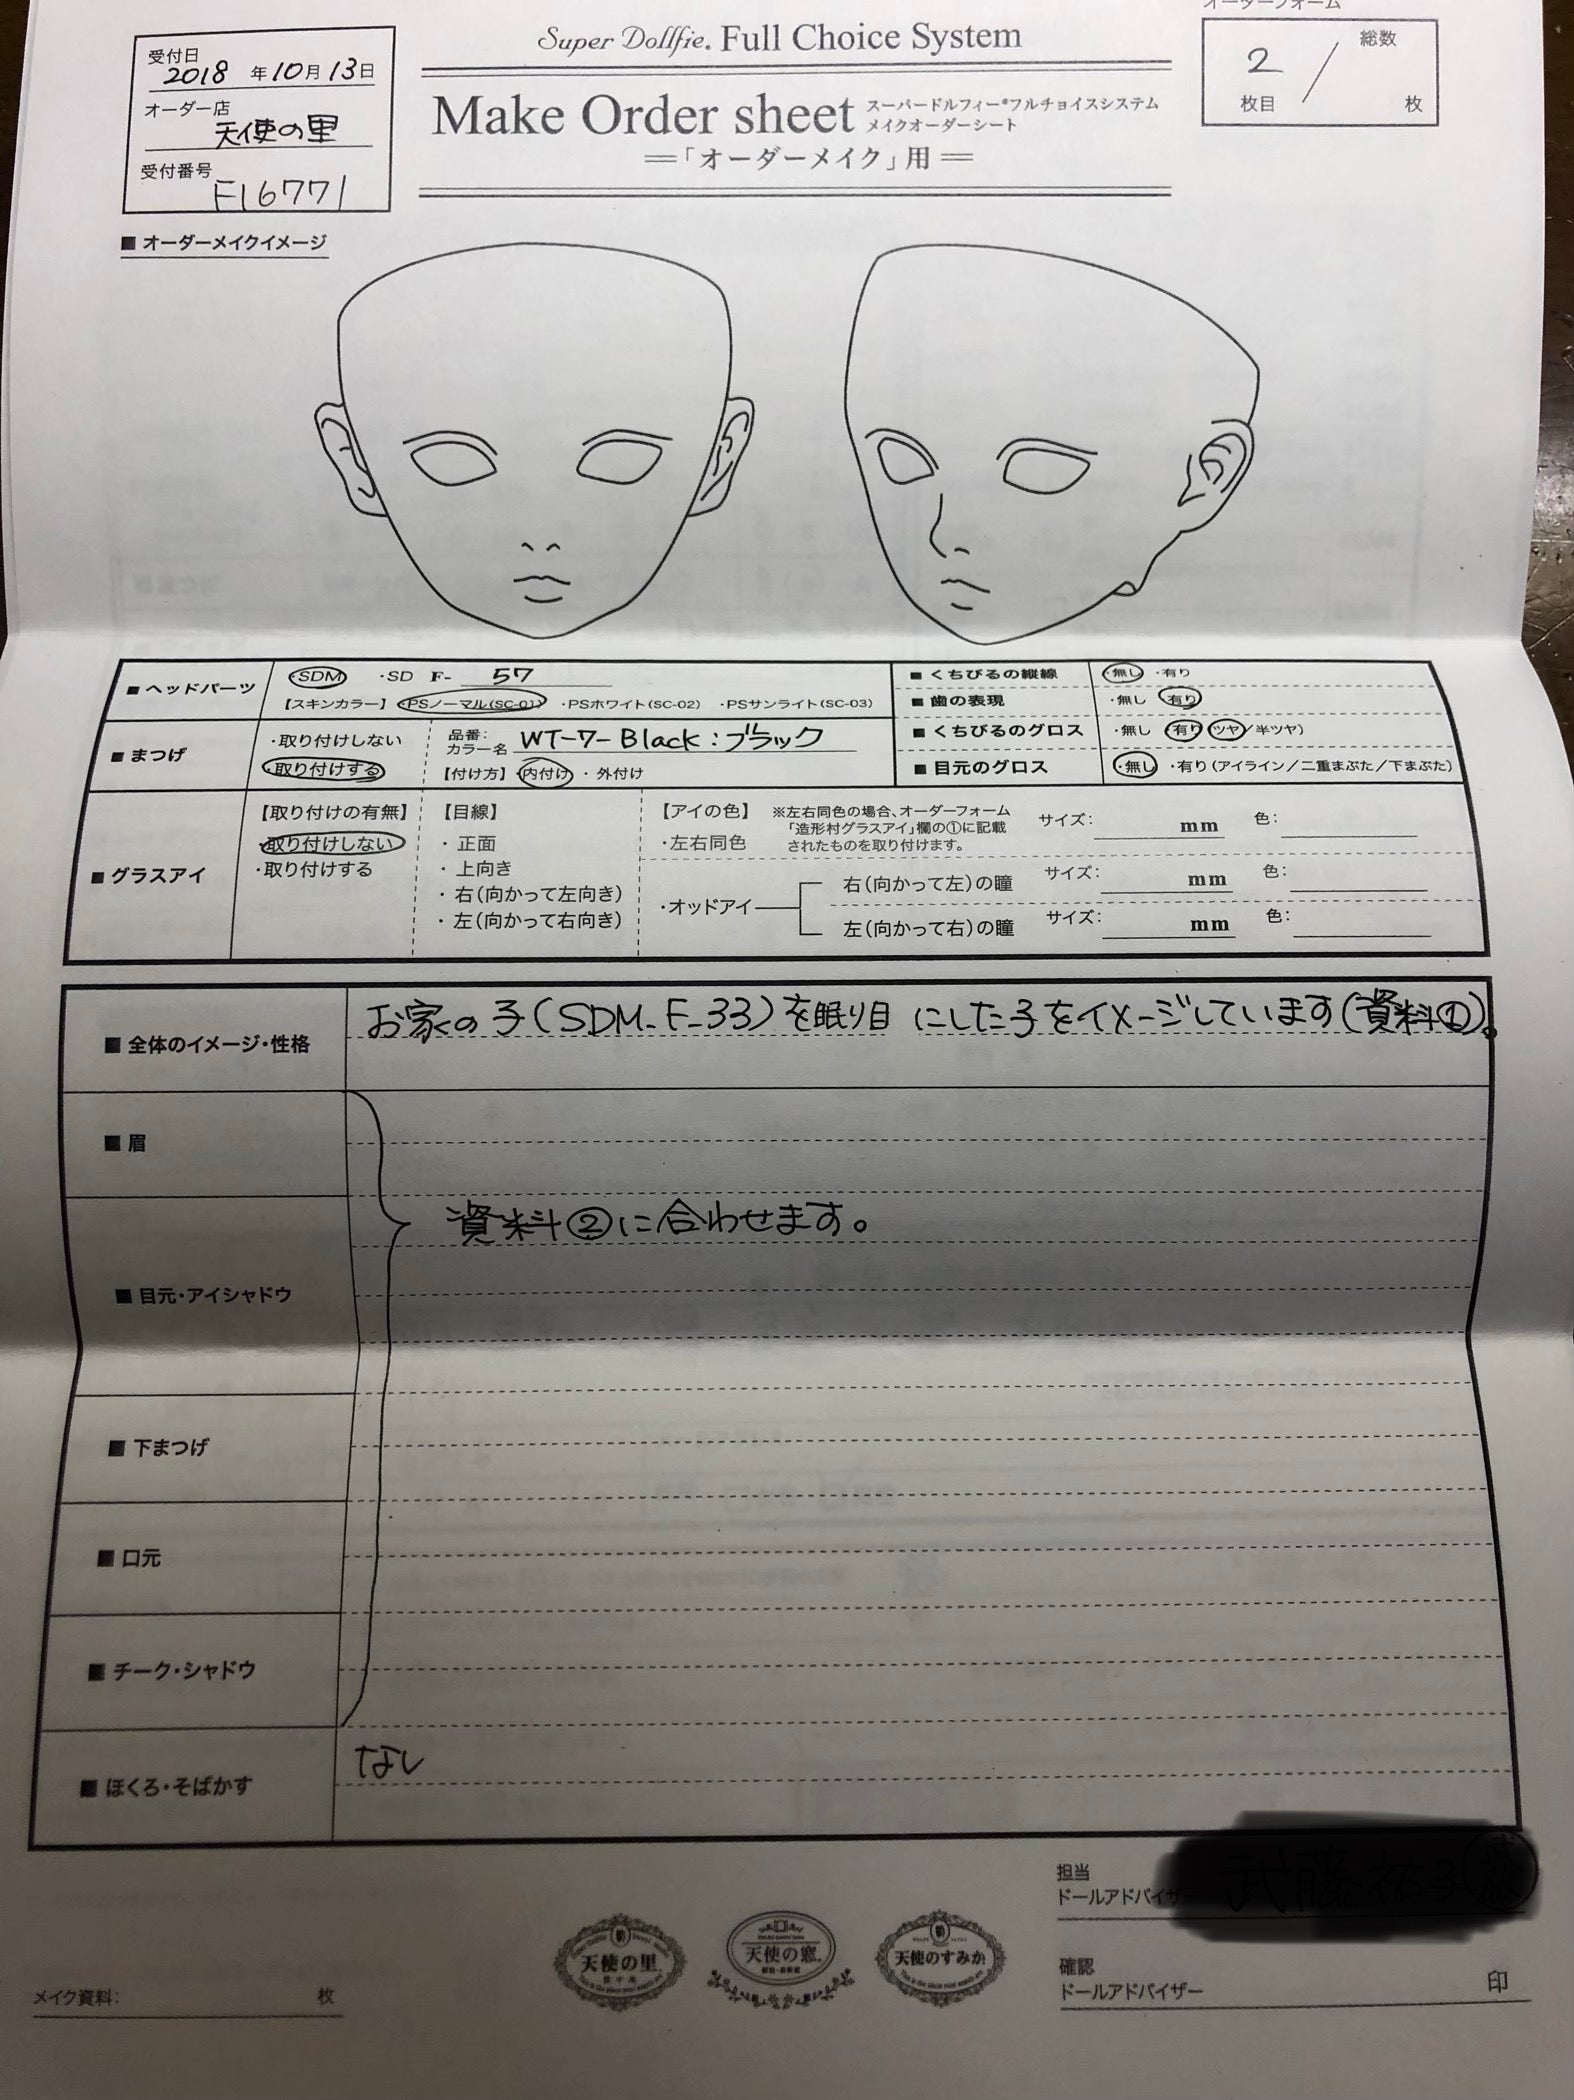 オーダーフォーム
受付日
2018 年 10 月 13 日
オーダー店
天使の里
受付番号
F16771
Super Dollfie® Full Choice System
Make Order sheet
スーパードルフィー®フルチョイスシステム
メイクオーダーシート
「オーダーメイク」用
2 枚目 / 総数 枚
■ オーダーメイクイメージ
■ ヘッドパーツ
・SDM ・SD F- 57
【スキンカラー】 ・PSノーマル(SC-01) ・PSホワイト(SC-02) ・PSサンライト(SC-03)
■ まつげ
・取り付けしない
・取り付けする
品番:
カラー名 WT-7-Black:ブラック
【付け方】 内付け ・ 外付け
■ くちびるの縦線 ・無し ・有り
■ 歯の表現 ・無し ・有り
■ くちびるのグロス ・無し ・有り(ツヤ/半ツヤ)
■ 目元のグロス ・無し ・有り(アイライン/二重まぶた/下まぶた)
■ グラスアイ
【取り付けの有無】
・取り付けしない
・取り付けする
【目線】
・ 正面
・ 上向き
・ 右(向かって左向き)
・ 左(向かって右向き)
【アイの色】 ※左右同色の場合、オーダーフォーム
「造形村グラスアイ」欄の①に記載
されたものを取り付けます。
・左右同色 サイズ: mm 色:
・オッドアイ
右(向かって左)の瞳 サイズ: mm 色:
左(向かって右)の瞳 サイズ: mm 色:
■ 全体のイメージ・性格
お家の子(SDM-F-33)を眠り目にした子をイメージしています(資料①)。
■ 眉
資料②に合わせます。
■ 目元・アイシャドウ
■ 下まつげ
■ 口元
■ チーク・シャドウ
■ ほくろ・そばかす
なし
担当
ドールアドバイザー
確認
ドールアドバイザー 印
メイク資料: 枚
天使の里
天使の窓
天使のすみか